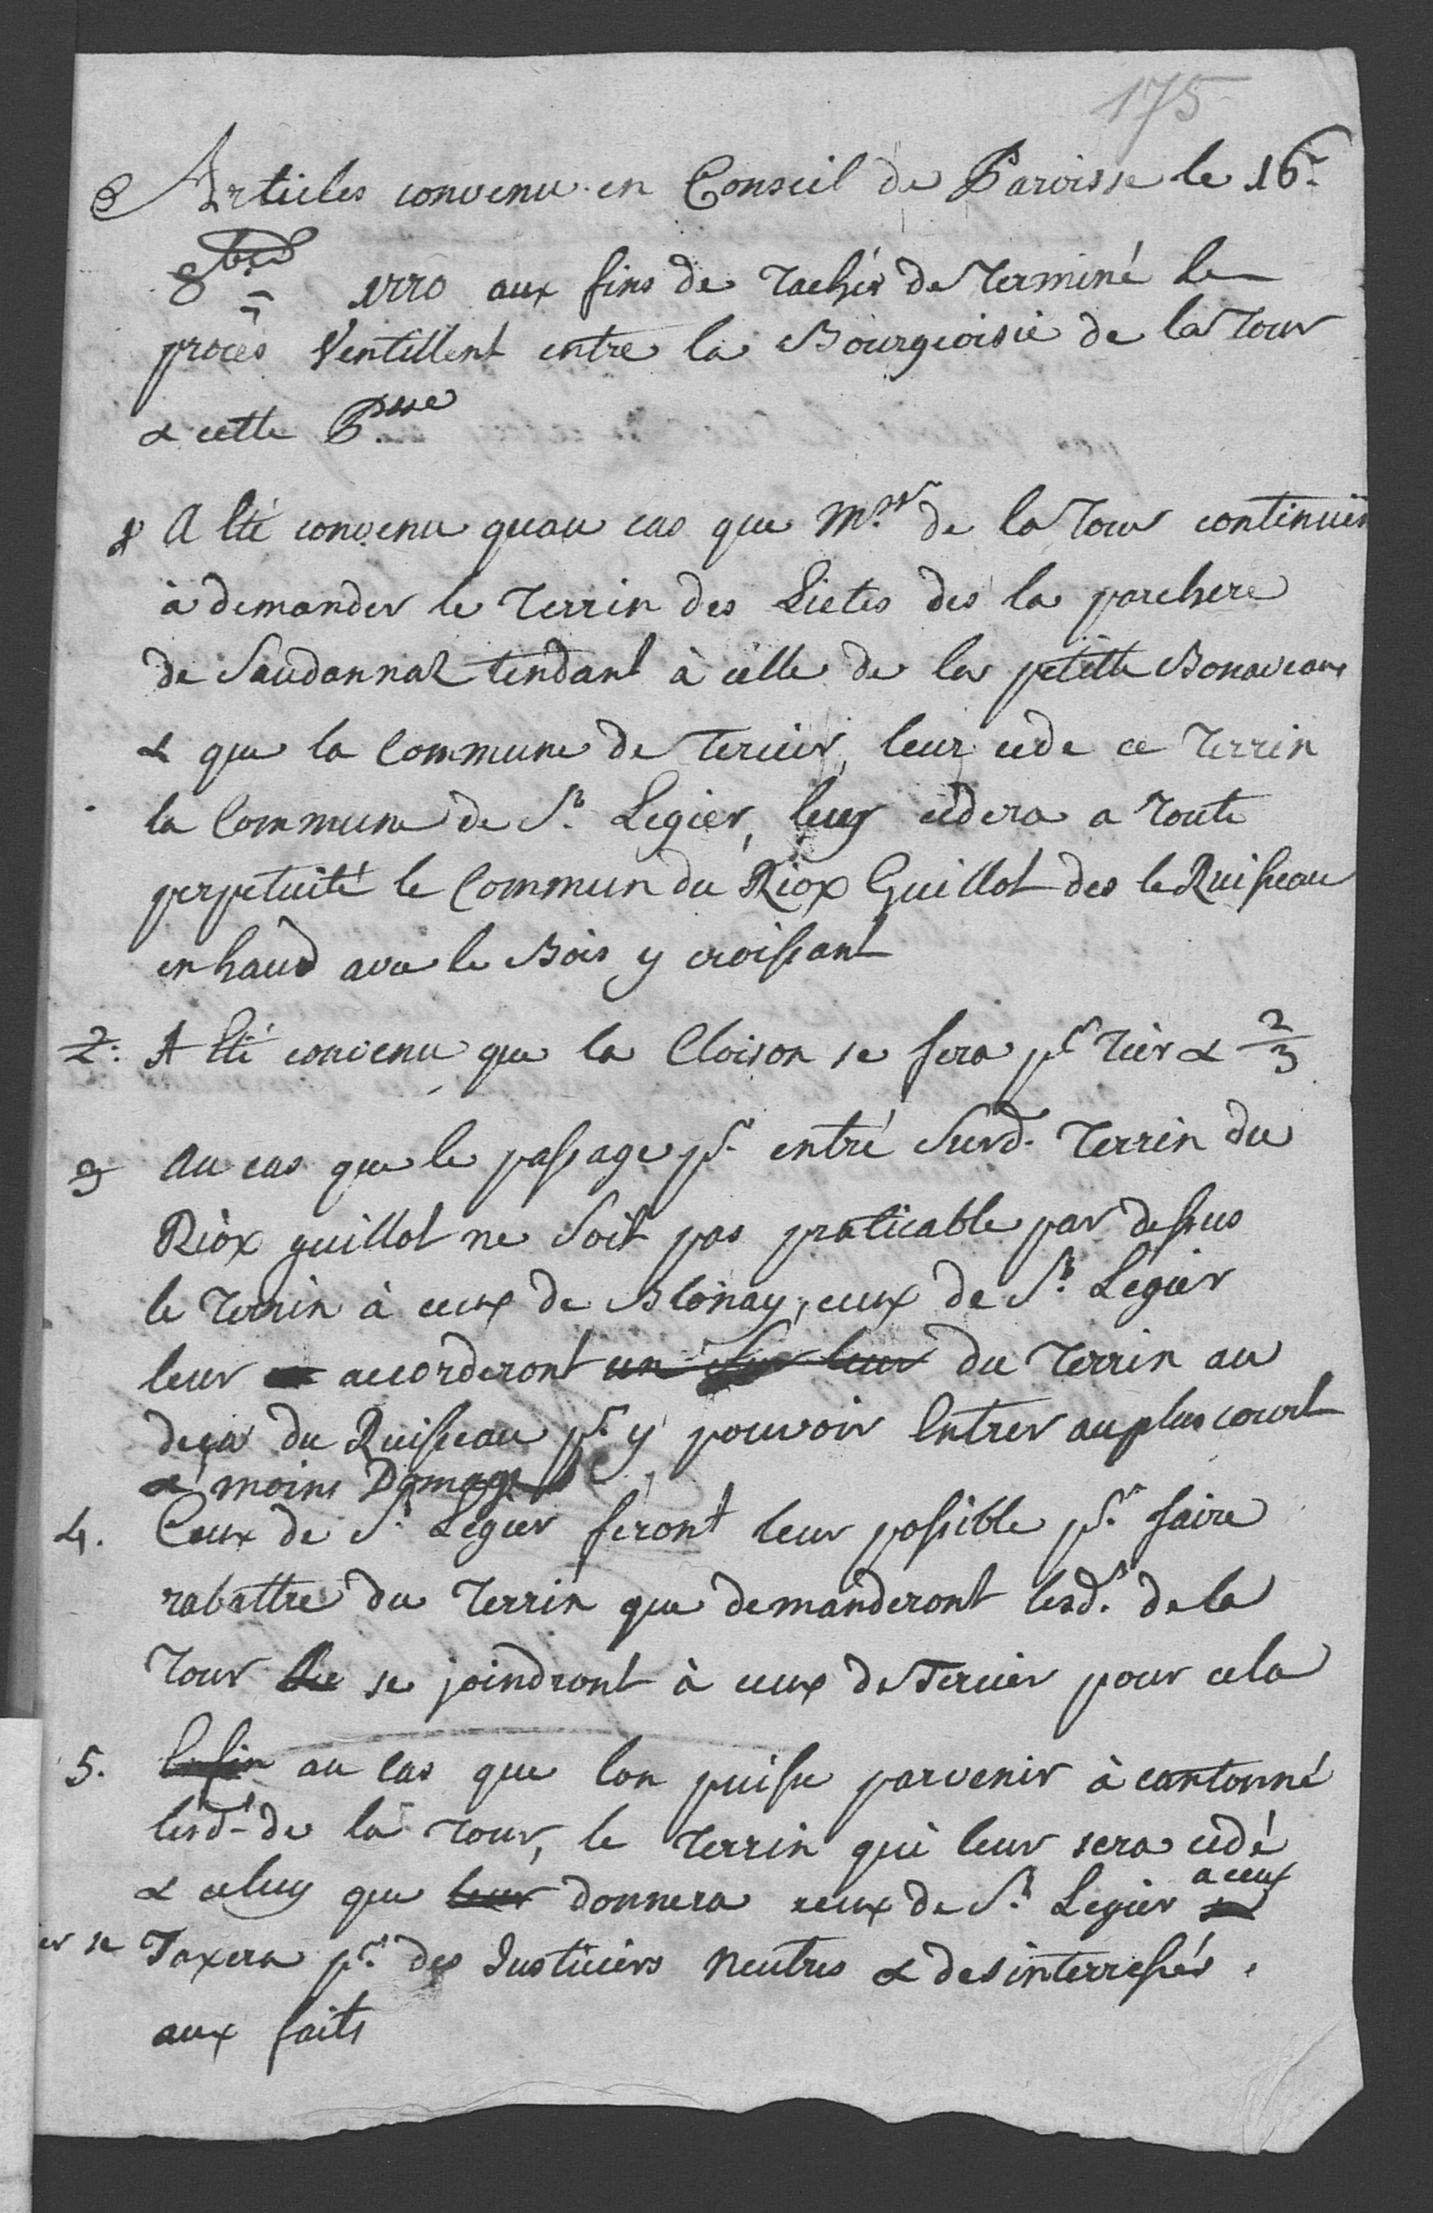 175
Articles convenu en Conseil de Paroisse le 16.e
8bre 1770 aux fins de Tachér de Terminé le
procès Ventillent entre la Bourgeoisie de la Tour
& cette P.sse
1 A Eté convenu quau cas que M.rs de la Tour continuên
à demander le Terrin des Lietes des la parchere
de Saudannaz tendant à celle de la petitte Bonaveaux
& que la Commune de Tercier, leur cede ce Terrin
la Commune de S.t Legier, leur cédera a Toute
perpetuité le Commun du Riox Guillot des le Ruisseau
en haud avec le Bois y croissant
2. A Eté convenu que la Cloison se fera p.r Tier & 2/3
3 Au cas que le passage p.r entré Surd. Terrin du
Riox guillot ne Soit pas praticable par dessus
le Terrin à ceux de Blonay, ceux de S.t Légier
leur accorderont un Sur leur du Terrin au
deça du Ruisseau p.r y pouvoir Entrer au plus court
& moins Domage
4. Ceux de S.t Légier feront leur possible p.r faire
rabattre du Terrin que demanderont lesd.s de la
Tour se joindront à ceux de Tercier pour cela
5. Enfin au Cas que lon puisse parvenir à cantonné
lesd.s de la Tour, le Terrin qui leur sera cédé
& celuy que leur donnera ceux de S.t Legier a ceux
er se Taxera p.r des Justiciers Neutres & desinterressés.
aux faits